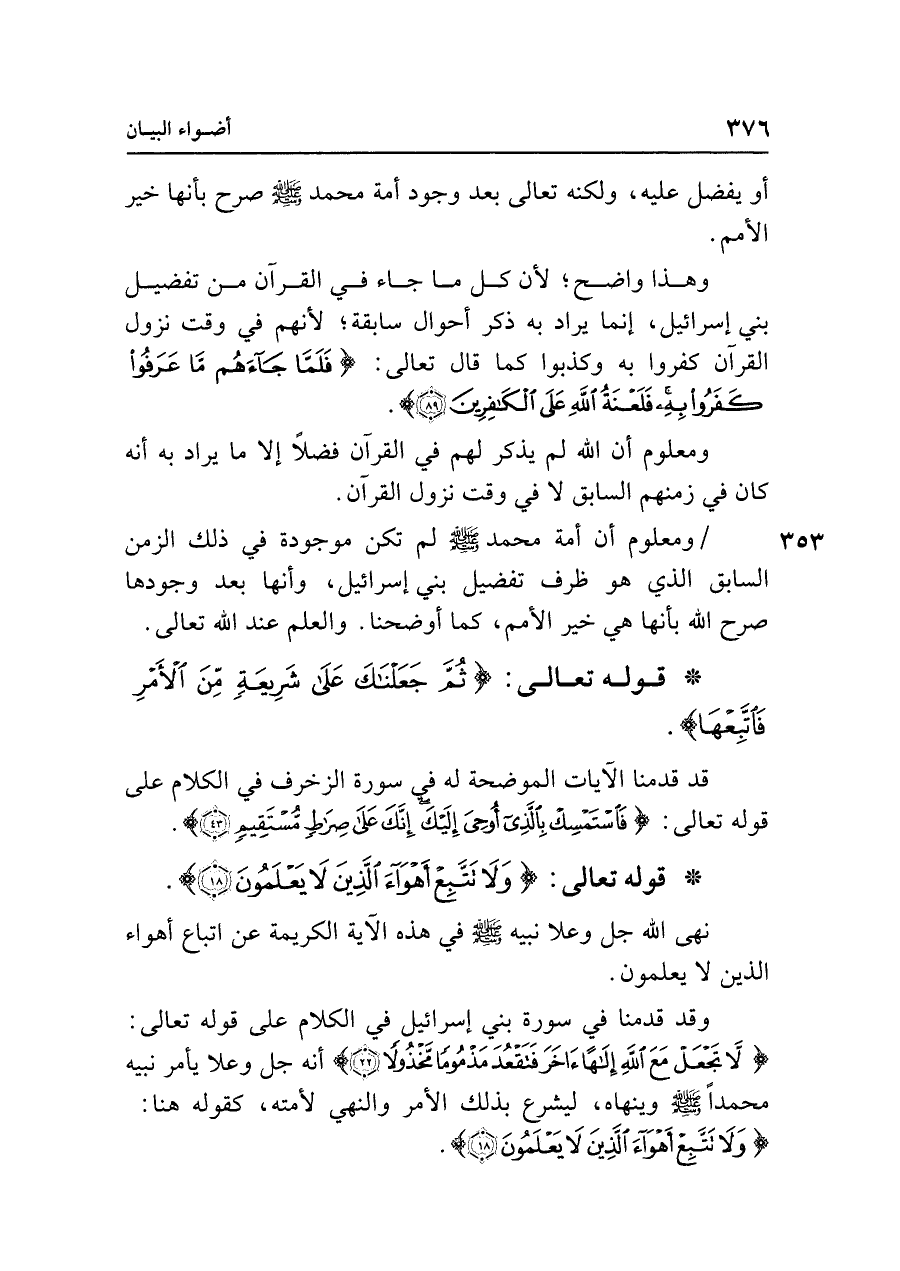 ٣٧٦ أضواء البيان
أو يفضل عليه، ولكنه تعالى بعد وجود أمة محمد ﷺ صرح بأنها خير
الأمم.
وهذا واضح؛ لأن كل ما جاء في القرآن من تفضيل
بني إسرائيل، إنما يراد به ذكر أحوال سابقة؛ لأنهم في وقت نزول
القرآن كفروا به وكذبوا كما قال تعالى: ﴿فَلَمَّا جَآءَهُم مَّا عَرَفُوا۟
كَفَرُوا۟ بِهِۦۚ فَلَعْنَةُ ٱللَّهِ عَلَى ٱلْكَـٰفِرِينَ ٨٩﴾.
ومعلوم أن الله لم يذكر لهم في القرآن فضلاً إلا ما يراد به أنه
كان في زمنهم السابق لا في وقت نزول القرآن.
٣٥٣ / ومعلوم أن أمة محمد ﷺ لم تكن موجودة في ذلك الزمن
السابق الذي هو ظرف تفضيل بني إسرائيل، وأنها بعد وجودها
صرح الله بأنها هي خير الأمم، كما أوضحنا. والعلم عند الله تعالى.
* قوله تعالى: ﴿ثُمَّ جَعَلْنَـٰكَ عَلَىٰ شَرِيعَةٍ مِّنَ ٱلْأَمْرِ
فَٱتَّبِعْهَا﴾.
قد قدمنا الآيات الموضحة له في سورة الزخرف في الكلام على
قوله تعالى: ﴿فَٱسْتَمْسِكْ بِٱلَّذِىٓ أُوحِىَ إِلَيْكَ ۖ إِنَّكَ عَلَىٰ صِرَٰطٍ مُّسْتَقِيمٍ ٤٣﴾.
* قوله تعالى: ﴿وَلَا تَتَّبِعْ أَهْوَآءَ ٱلَّذِينَ لَا يَعْلَمُونَ ١٨﴾.
نهى الله جل وعلا نبيه ﷺ في هذه الآية الكريمة عن اتباع أهواء
الذين لا يعلمون.
وقد قدمنا في سورة بني إسرائيل في الكلام على قوله تعالى:
﴿لَّا تَجْعَلْ مَعَ ٱللَّهِ إِلَـٰهًا ءَاخَرَ فَتَقْعُدَ مَذْمُومًا مَّخْذُولًا ٢٢﴾ أنه جل وعلا يأمر نبيه
محمداً ﷺ وينهاه، ليشرع بذلك الأمر والنهي لأمته، كقوله هنا:
﴿وَلَا تَتَّبِعْ أَهْوَآءَ ٱلَّذِينَ لَا يَعْلَمُونَ ١٨﴾.